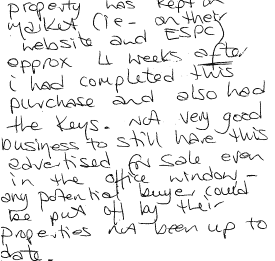 property has kept on
market (ie - on their
website and ESPC)
approx 4 weeks after
i had completed this
purchase and also had
the keys. Not very good
business to still have this
advertised for sale even
in the office window -
any potential buyer could
be put off by their
properties not been up to
date.